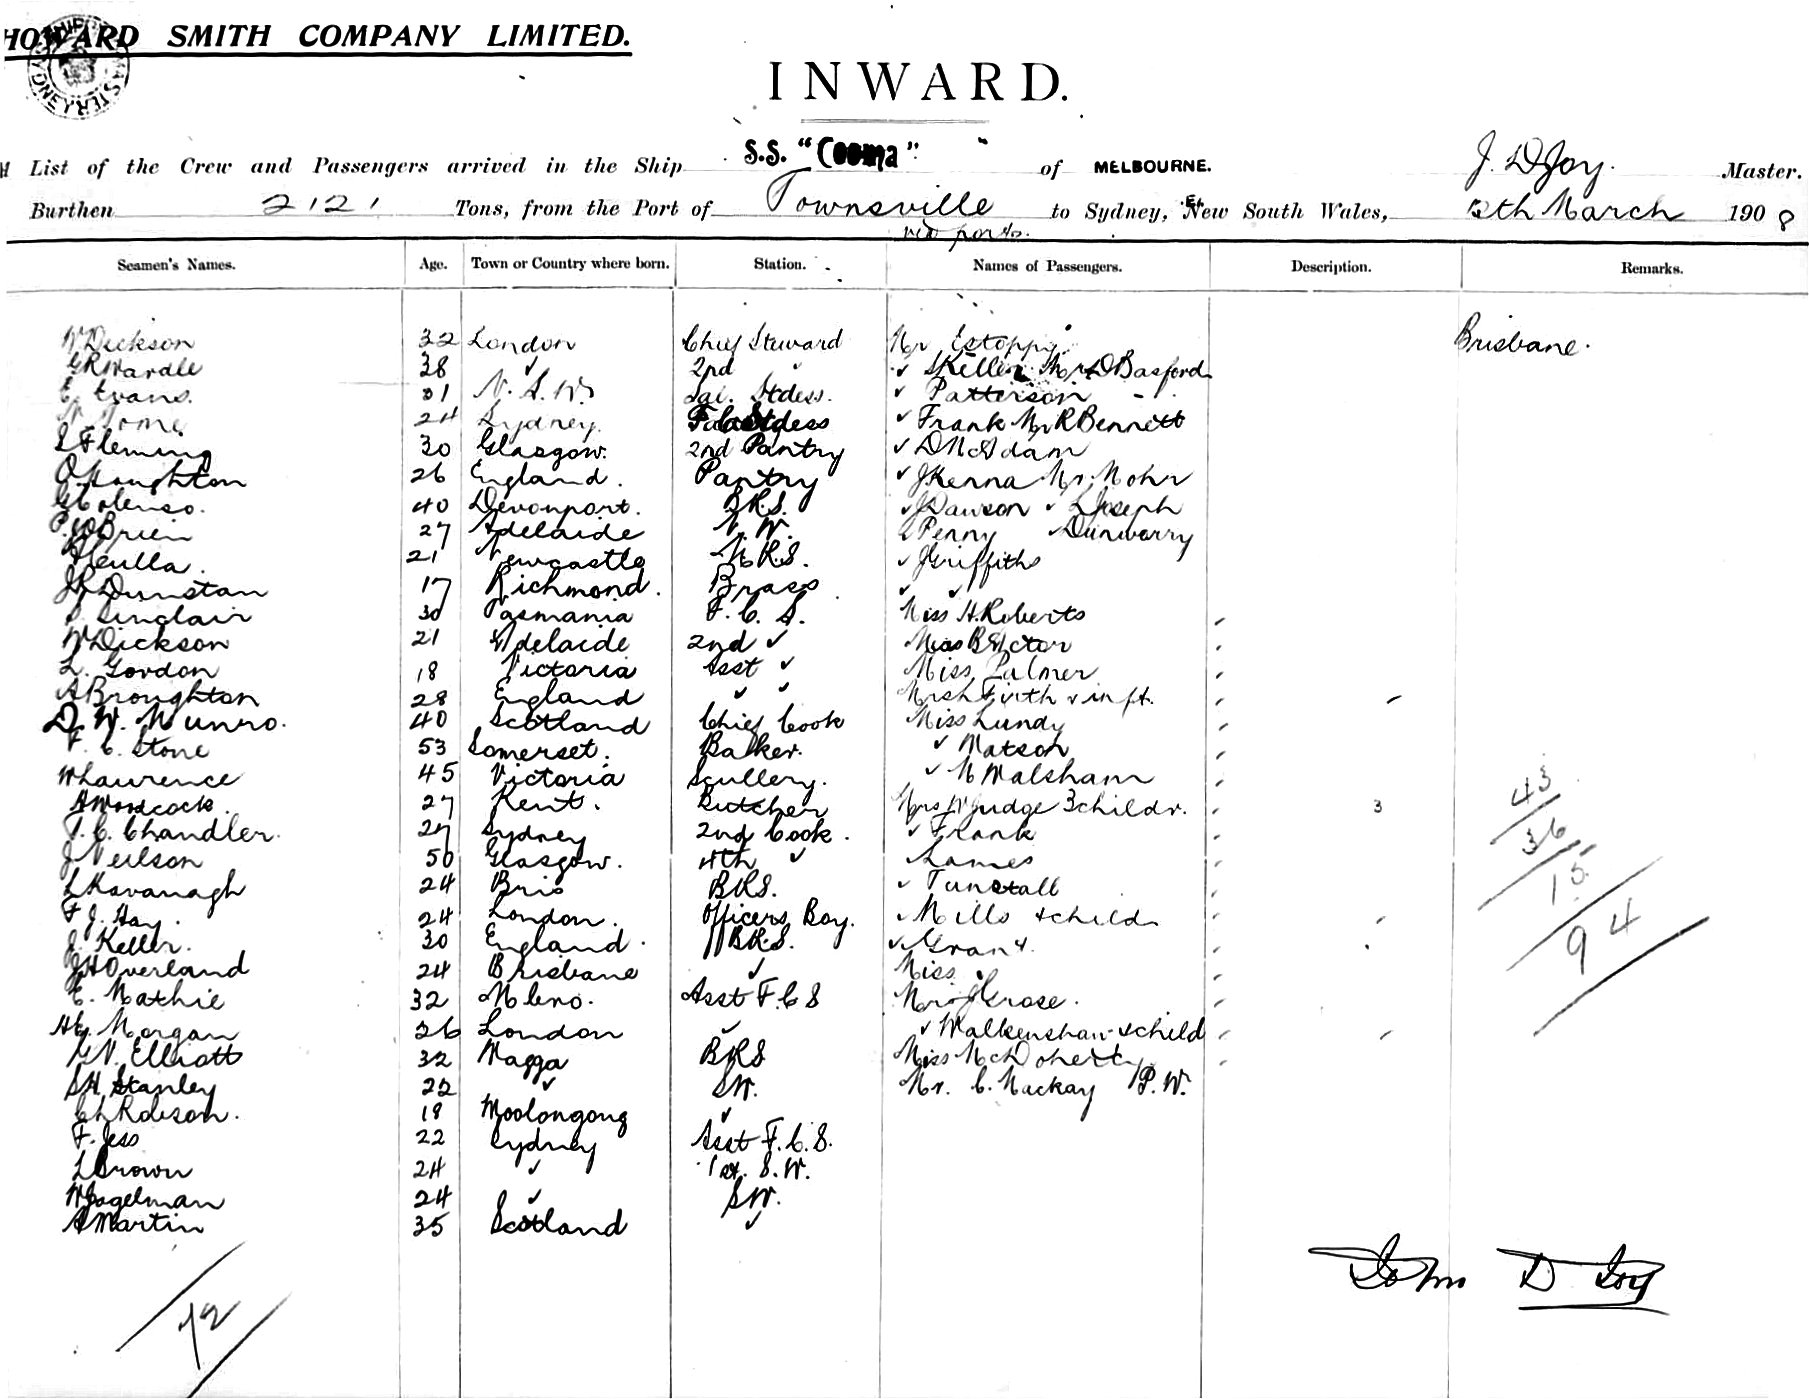 HOWARD SMITH COMPANY LIMITED.
INWARD.
List of the Crew and Passengers arrived in the Ship S.S. "Cooma" of MELBOURNE. J. D Joy. Master.
Burthen 2121 Tons, from the Port of Townsville to Sydney, New South Wales, 12th March 1908
via ports.
Seamen's Names. Age. Town or Country where born. Station. Names of Passengers. Description. Remarks.
W Dickson 32 London Chief Steward Mr Brisbane.
G R Wardle 38 ✓ 2nd ✓ Mr D Basford
E. Evans. 31 N. S. W. Sal. Stdess. ✓ Patterson
24 Sydney. Stdess ✓ Frank Mr R Bennett
S Fleming 30 Glasgow. 2nd Pantry ✓ D McAdam
26 England. Pantry ✓ J Kenna Mr. Mohr
G Colenso. 40 Devonport. B.R.S. ✓ J Dawson ✓ L Joseph
P. O'Brien 27 Adelaide N. W. Penny Dunwarry
21 Newcastle M.R.S. ✓ J Griffiths
Dunstan 17 Richmond. Brass ✓ ✓
Sinclair 30 Tasmania F. C. S. Miss H. Roberts
W Dickson 21 Adelaide 2nd ✓ Miss
L. Gordon 18 Victoria Asst ✓ Miss Palmer
A Broughton 28 England ✓ ✓ Firth & inft.
D. W. Munro. 40 Scotland Chief Cook Miss Lundy
F. C. Stone 53 Somerset. Baker. ✓ Watson
W Laurence 45 Victoria Scullery. ✓ N Walsham
A Woodcock. 27 Kent. Butcher Mrs W Judge 3 childr. 3
J. C. Chandler. 27 Sydney 2nd Cook. ✓ Frank
J Neilson 50 Glasgow. 4th ✓ ✓ James
L Kavanagh 24 Bris B.R.S. ✓ Tunstall
F. J. Hay. 24 London. Officers Boy. ✓ Mills & child
J. Keller. 30 England. B.R.S. ✓ Grant.
J H Overland 24 Brisbane ✓ Miss ✓
E. Mathie 32 Melno. Asst F.C.S Mrs J Crase.
Morgan 26 London ✓ ✓ Walkenshaw & child
G V. Elliott 32 Wagga B.R.S Miss McDoherty
S H. Stanley 22 ✓ SW. Mr. C. Mackay P. W.
C L Robison. 19 Woolongong ✓
F. Jess 22 Sydney Asst F.C.S.
L Brown 24 ✓ 1st. S. W.
W Fagelman 24 ✓ SW.
A Martin 35 Scotland ✓
43
36
15
94
John D Joy
72